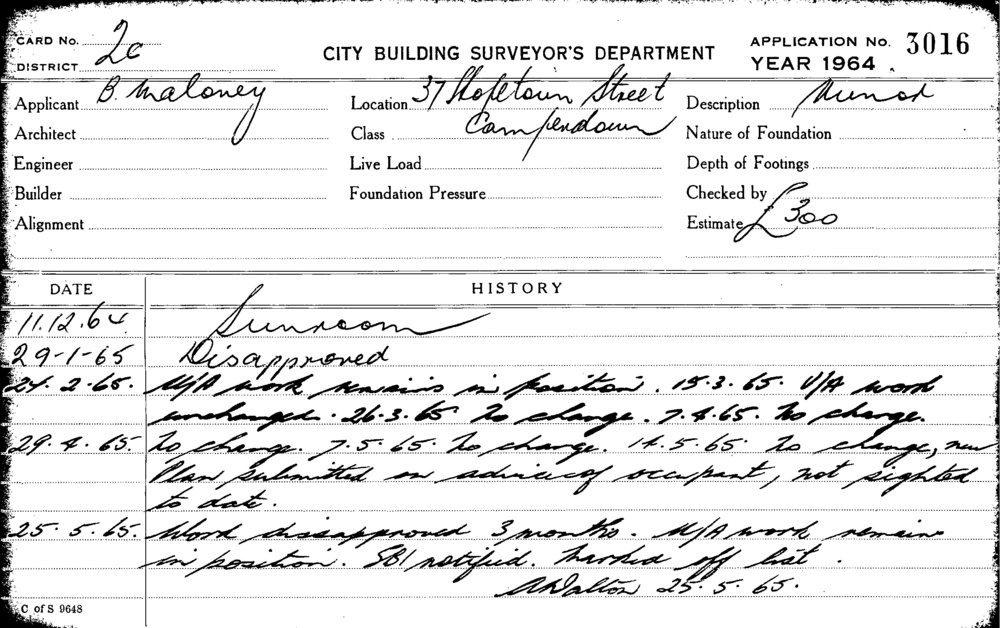 CARD No. 2c
DISTRICT
CITY BUILDING SURVEYOR'S DEPARTMENT
APPLICATION No. 3016
YEAR 1964
Applicant B. Maloney
Location 37 Hopetoun Street
Description Minor
Architect
Class Camperdown
Nature of Foundation
Engineer
Live Load
Depth of Footings
Builder
Foundation Pressure
Checked by
Alignment
Estimate £300
DATE HISTORY
11.12.64 Sunroom
29-1-65 Disapproved
24.2.65. U/A work remains in position. 15.3.65. U/A work
unchanged. 26.3.65 No change. 7.4.65. No change.
29.4.65. No change. 7.5.65. No change. 14.5.65 No change, new
Plan submitted on advice of occupant, not sighted
to date.
25.5.65. Work disapproved 3 months. U/A work remains
in position. SBI notified. Marked off list.
A Dalton 25.5.65.
C of S 9648